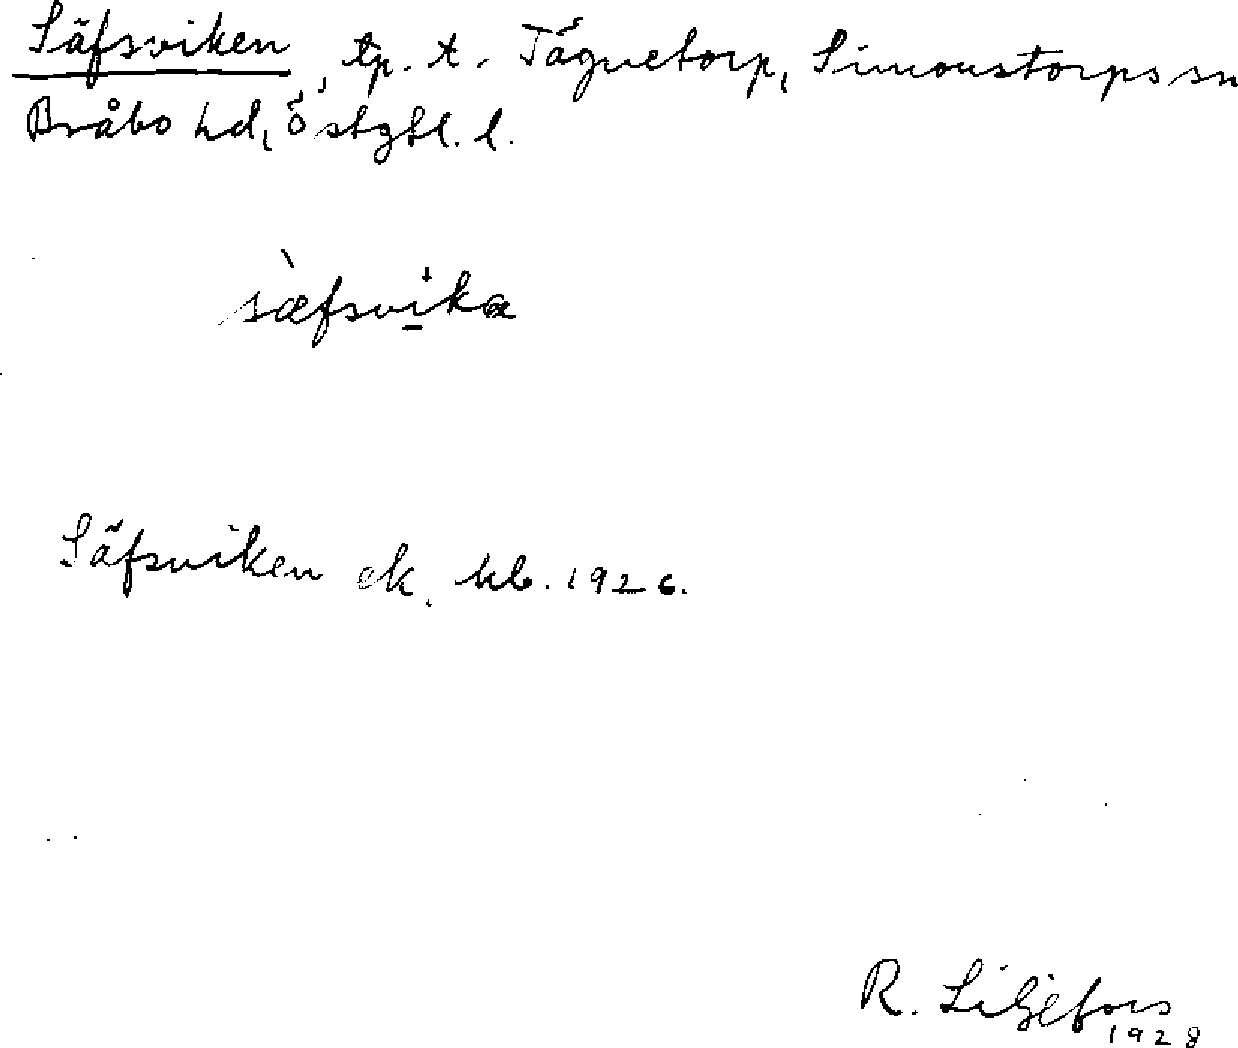 Säfsviken, tp. t. Tågnetorp, Simonstorps sn
Bråbo hd, Östgtl. l.
sæ̀fsvika
Säfsviken ek. kb. 1926.
R. Liljefors
1928